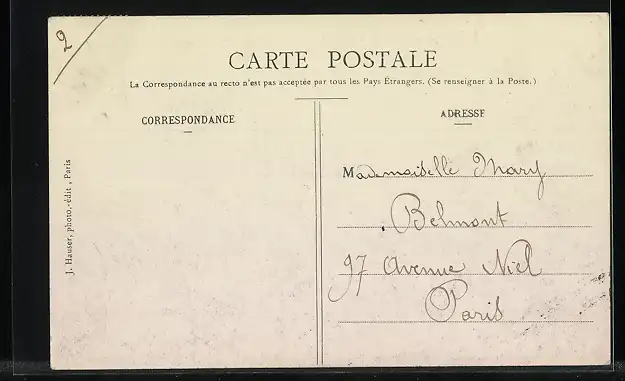 2
CARTE POSTALE
La Correspondance au recto n'est pas acceptée par tous les Pays Étrangers. (Se renseigner à la Poste.)
CORRESPONDANCE
ADRESSE
J. Hauser, photo.-édit, Paris
Mademoiselle Mary
Belmont
97 Avenue Niel
Paris